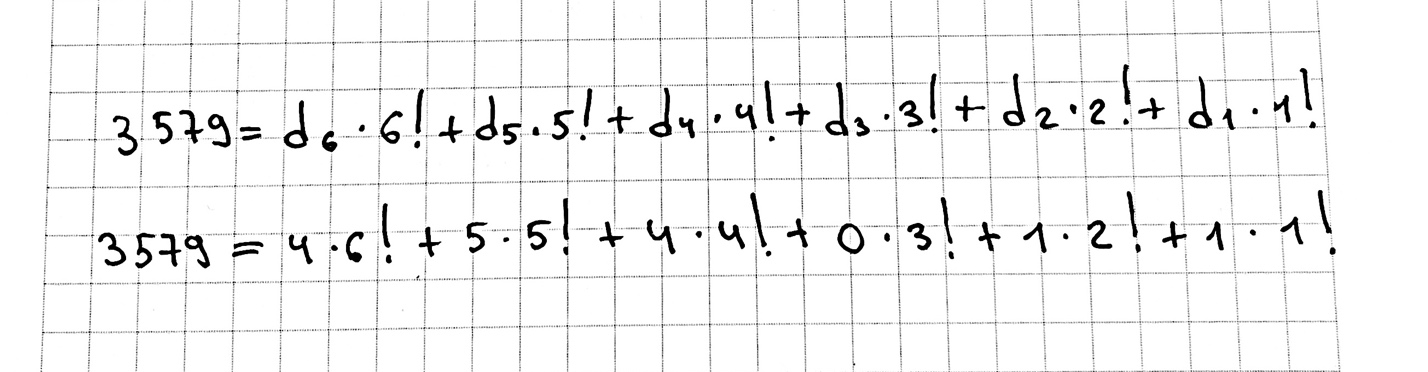 3579 = d₆ · 6! + d₅ · 5! + d₄ · 4! + d₃ · 3! + d₂ · 2! + d₁ · 1!
3579 = 4 · 6! + 5 · 5! + 4 · 4! + 0 · 3! + 1 · 2! + 1 · 1!